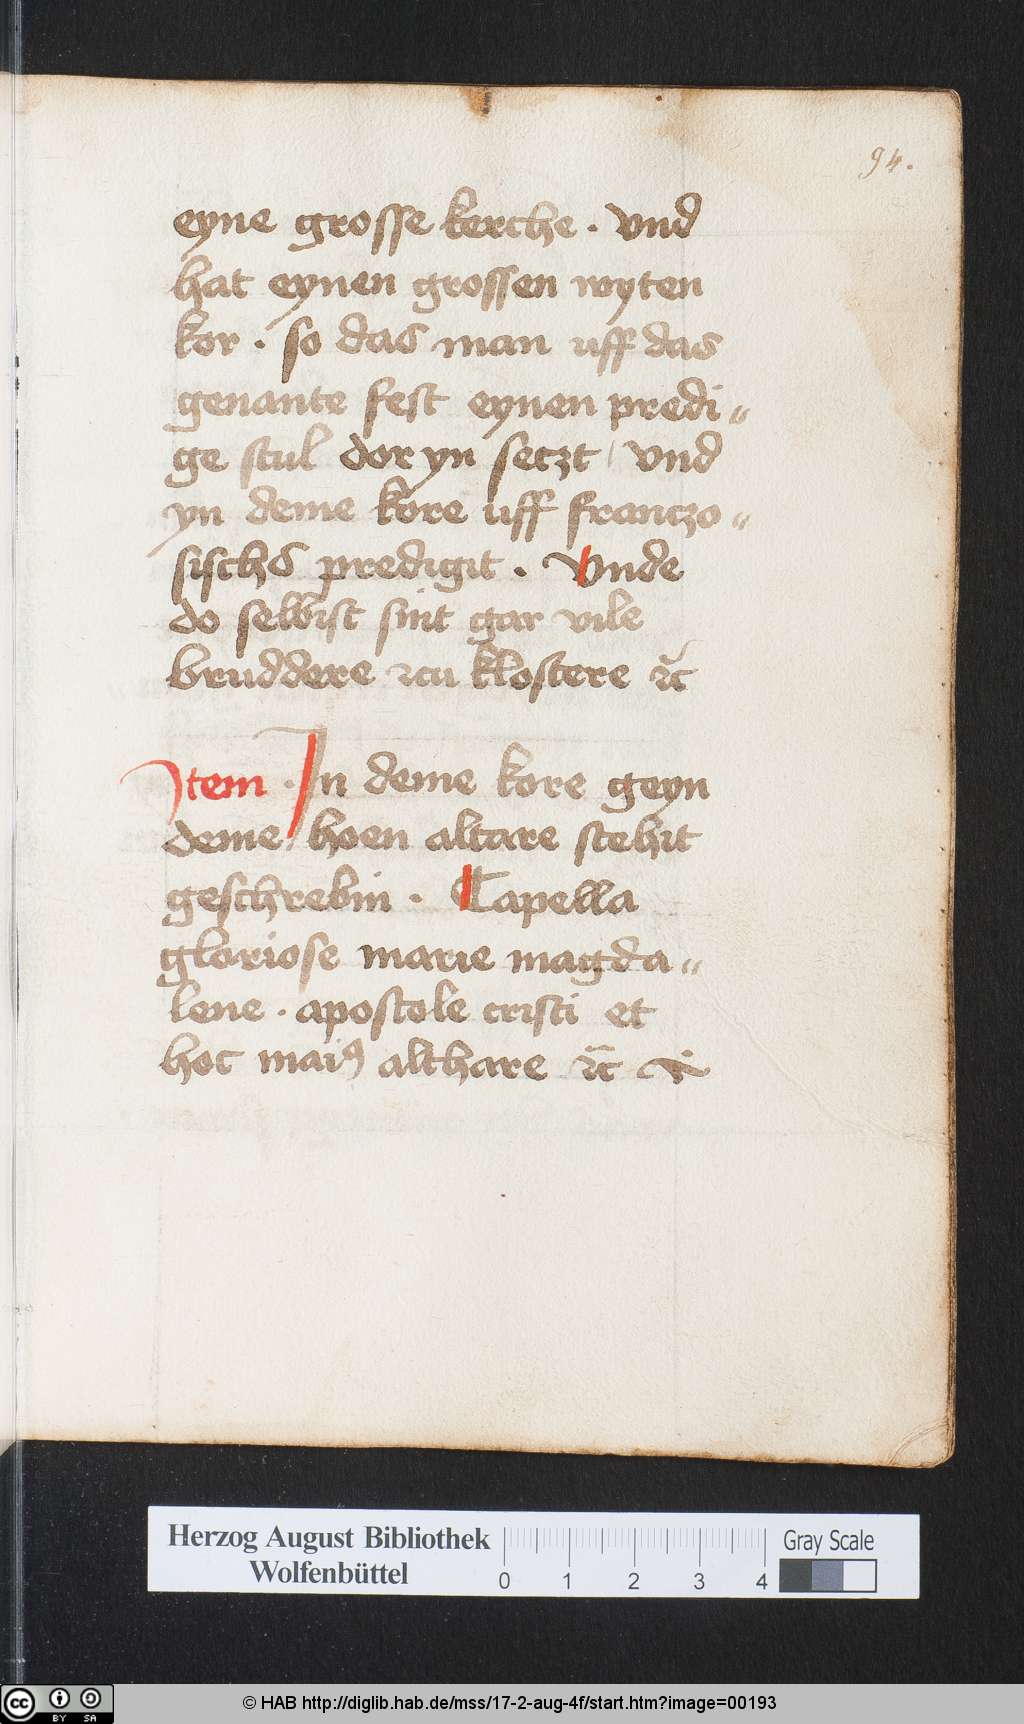 94.
eyne grosse kerche · vnd
hat eynen grossen wyten
kor · so das man uff das
genante fest eynen predi„
ge stul dor yn seczt / vnd
yn deme kore uff franczo„
sischs predigit · Vnde
do selbist sint gar vile
bruddere zcu klostere ꝛc̃
Item · In deme kore geyn
deme hoen altare stehit
geschrebin · Capella
gloriose marie magda„
lene · apostole cristi et
hoc maiꝰ althare ꝛc̃
Herzog August Bibliothek
Wolfenbüttel
0 1 2 3 4
Gray Scale
cc BY SA
© HAB http://diglib.hab.de/mss/17-2-aug-4f/start.htm?image=00193